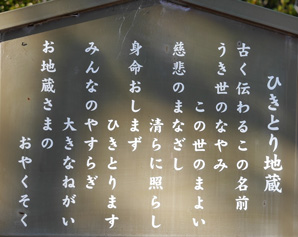 ひきとり地蔵
古く伝わるこの名前
うき世のなやみ
この世のまよい
慈悲のまなざし
清らに照らし
身命おしまず
ひきとります
みんなのやすらぎ
大きなねがい
お地蔵さまの
おやくそく